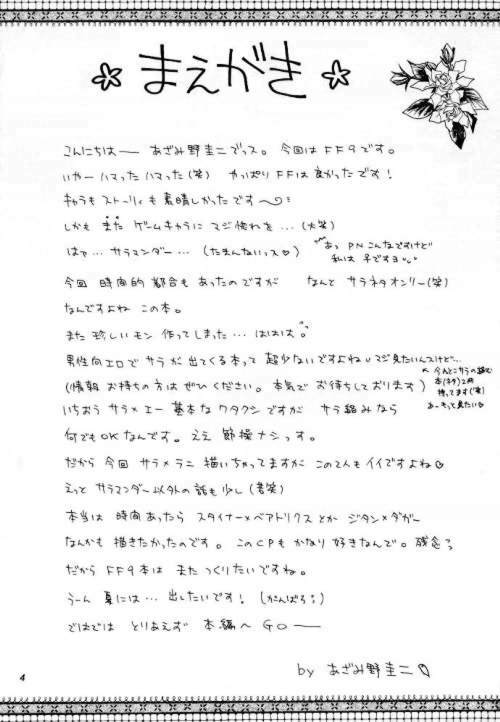 まえがき
こんにちはー あざみ野圭二でっス。今回はFF9です。
いやーハマったハマった(笑) やっぱりFFは良かったです!
キャラもストーリィも素晴しかったです〜
しかも また ゲームキャラに マジ惚れを…(火笑)
はぁ… サラマンダー… (たまんないっス♡)
あっ PN こんなですけど
私は 子ですヨ
今回 時間的都合もあったのですが なんと サラネタオンリー(笑)
なんですよね この本。
また珍しいモン 作ってしまった… ははは。
男性向エロで サラが出てくる本って 超少ないですよね マジ見たいんスけど…
(情報 お持ちの方は ぜひください。本気で お待ちしております)
今んとこサラの絡む
本(ネタ)2冊
持ってます(笑)
あーもっと見たい
いちおう サラ×エー 基本な ワタクシですが サラ絡みなら
何でもOKなんです。ええ 節操ナシっす。
だから 今回 サラ×ラニ 描いちゃってますが この2人も イイですよね♡
えっと サラマンダー以外の話も少し(苦笑)
本当は 時間あったら スタイナー×ベアトリクス とか ジタン×ダガー
なんかも 描きたかったのです。このCPも かなり 好きなんで。残念
だから FF9本は また つくりたいですね。
うーん 夏には… 出したいです! (がんばろ)
ではでは とりあえず 本編へ GOー
by あざみ野圭二
4